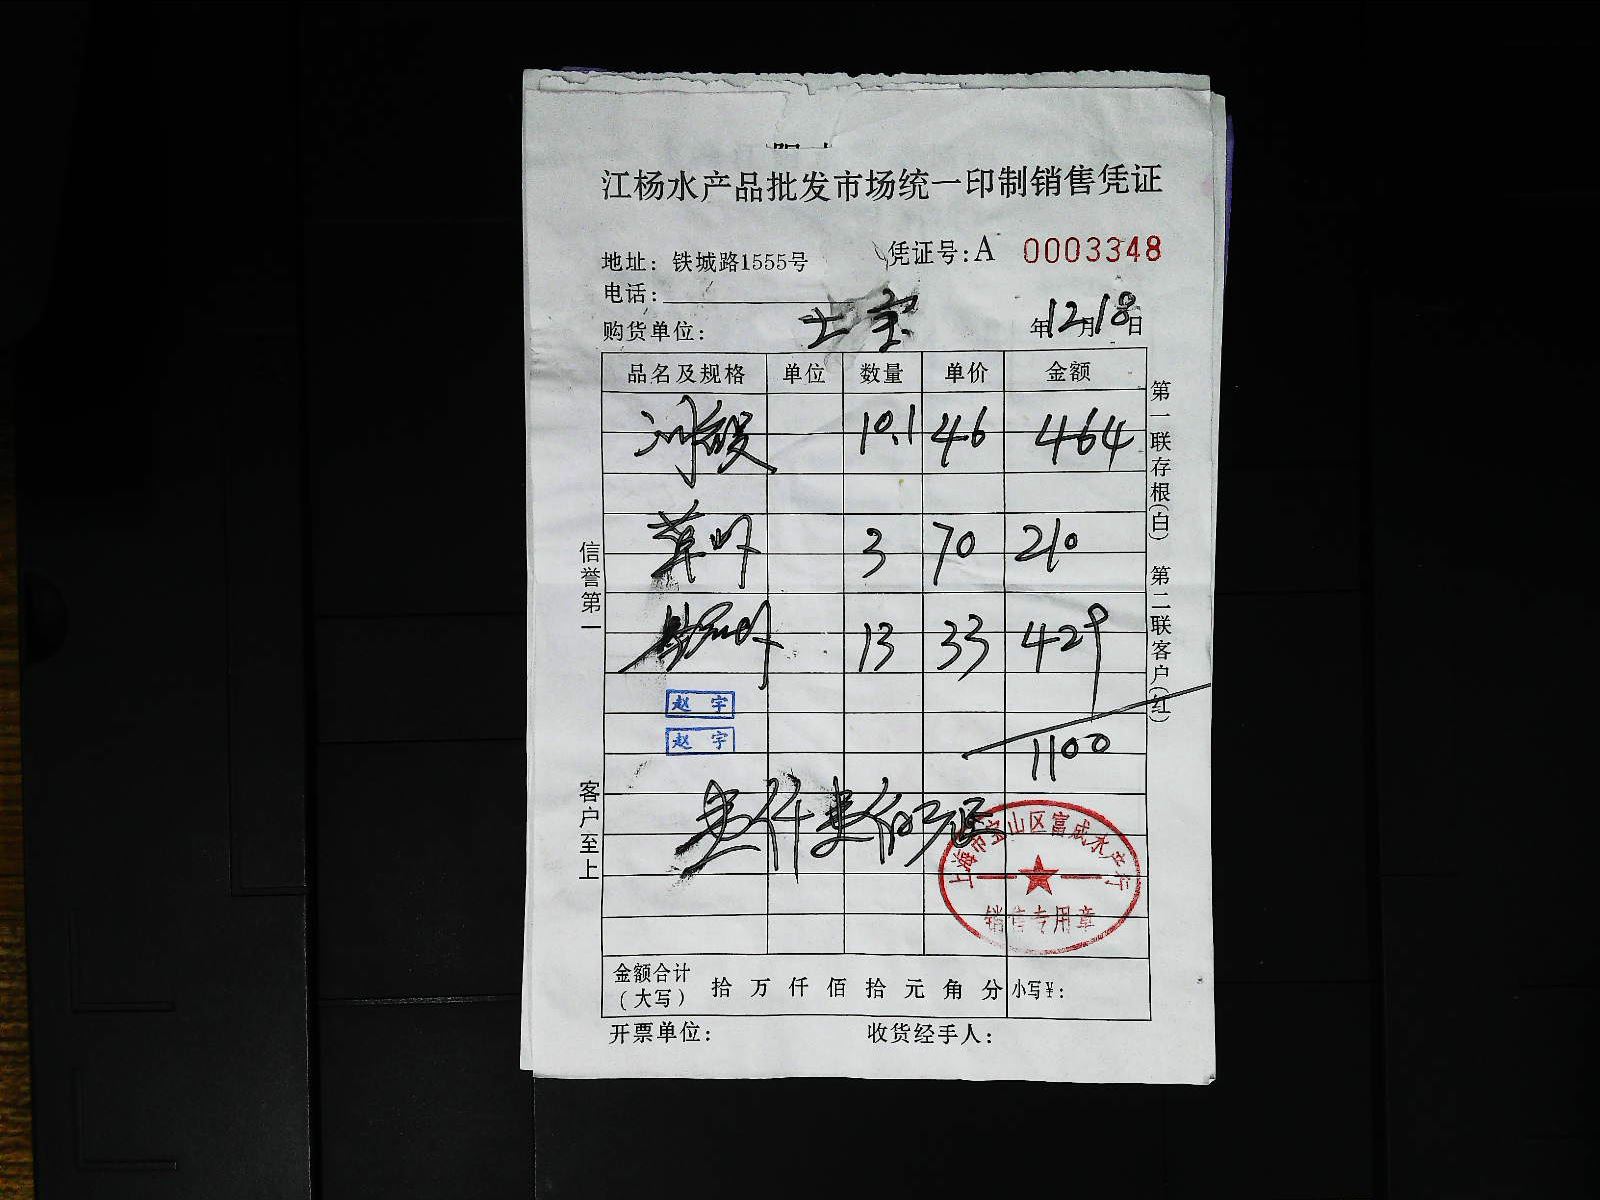 江杨水产品批发市场统一印制销售凭证
地址: 铁城路1555号 凭证号: A 0003348
电话:
购货单位: 年12月18日
品名及规格 单位 数量 单价 金额
10.1 46 464
草虾 3 70 210
13 33 429
赵宇
赵宇
1100
壹仟壹佰
上海市宝山区富成水产行
销售专用章
金额合计(大写) 拾 万 仟 佰 拾 元 角 分 小写¥:
开票单位: 收货经手人:
信誉第一
客户至上
第一联存根(白) 第二联客户(红)